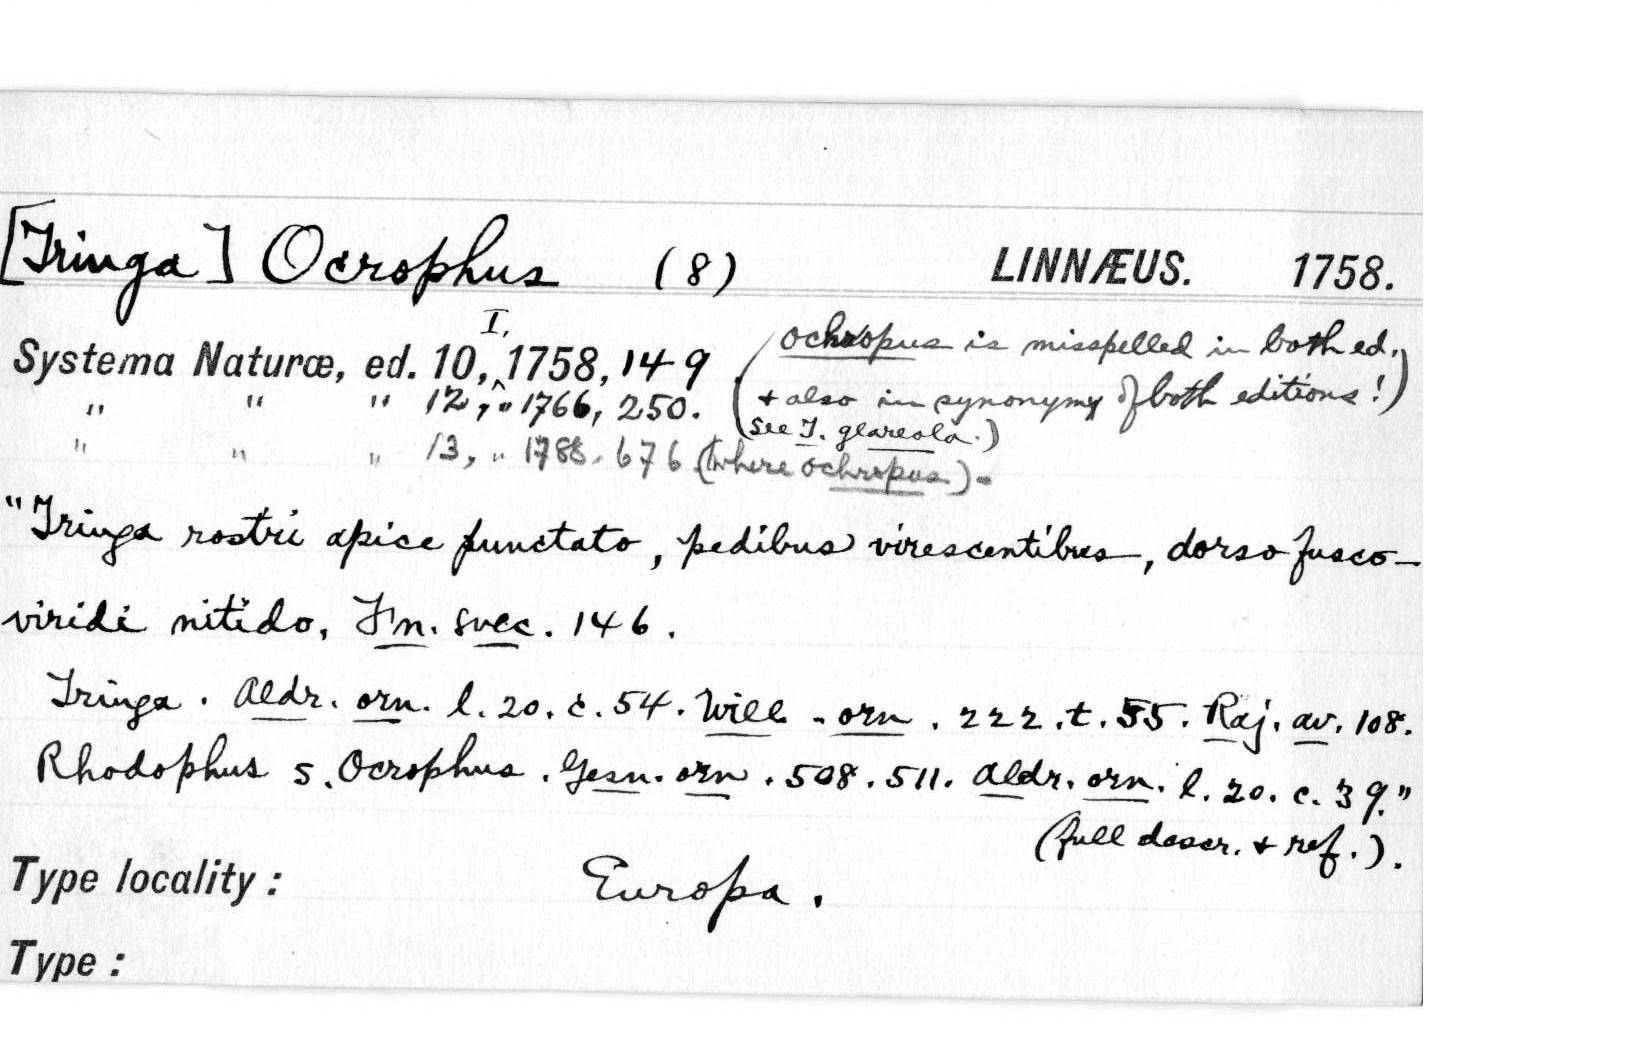 [Tringa] Ocrophus (8) LINNÆUS. 1758.
Systema Naturæ, ed. 10, I, 1758, 149. (ochropus is misspelled in both ed.
" " " 12, " 1766, 250. + also in synonymy of both editions!)
(see T. glareola.)
" " " 13, " 1788. 676 (where ochropus).
"Tringa rostri apice punctato, pedibus virescentibus, dorso fusco-
viridi nitido, Fn. svec. 146.
Tringa. Aldr. orn. l. 20. c. 54. Will. orn. 222. t. 55. Raj. av. 108.
Rhodophus s. Ocrophus. Gesn. orn. 508. 511. Aldr. orn. l. 20. c. 39."
(full descr. + ref.).
Type locality: Europa.
Type: